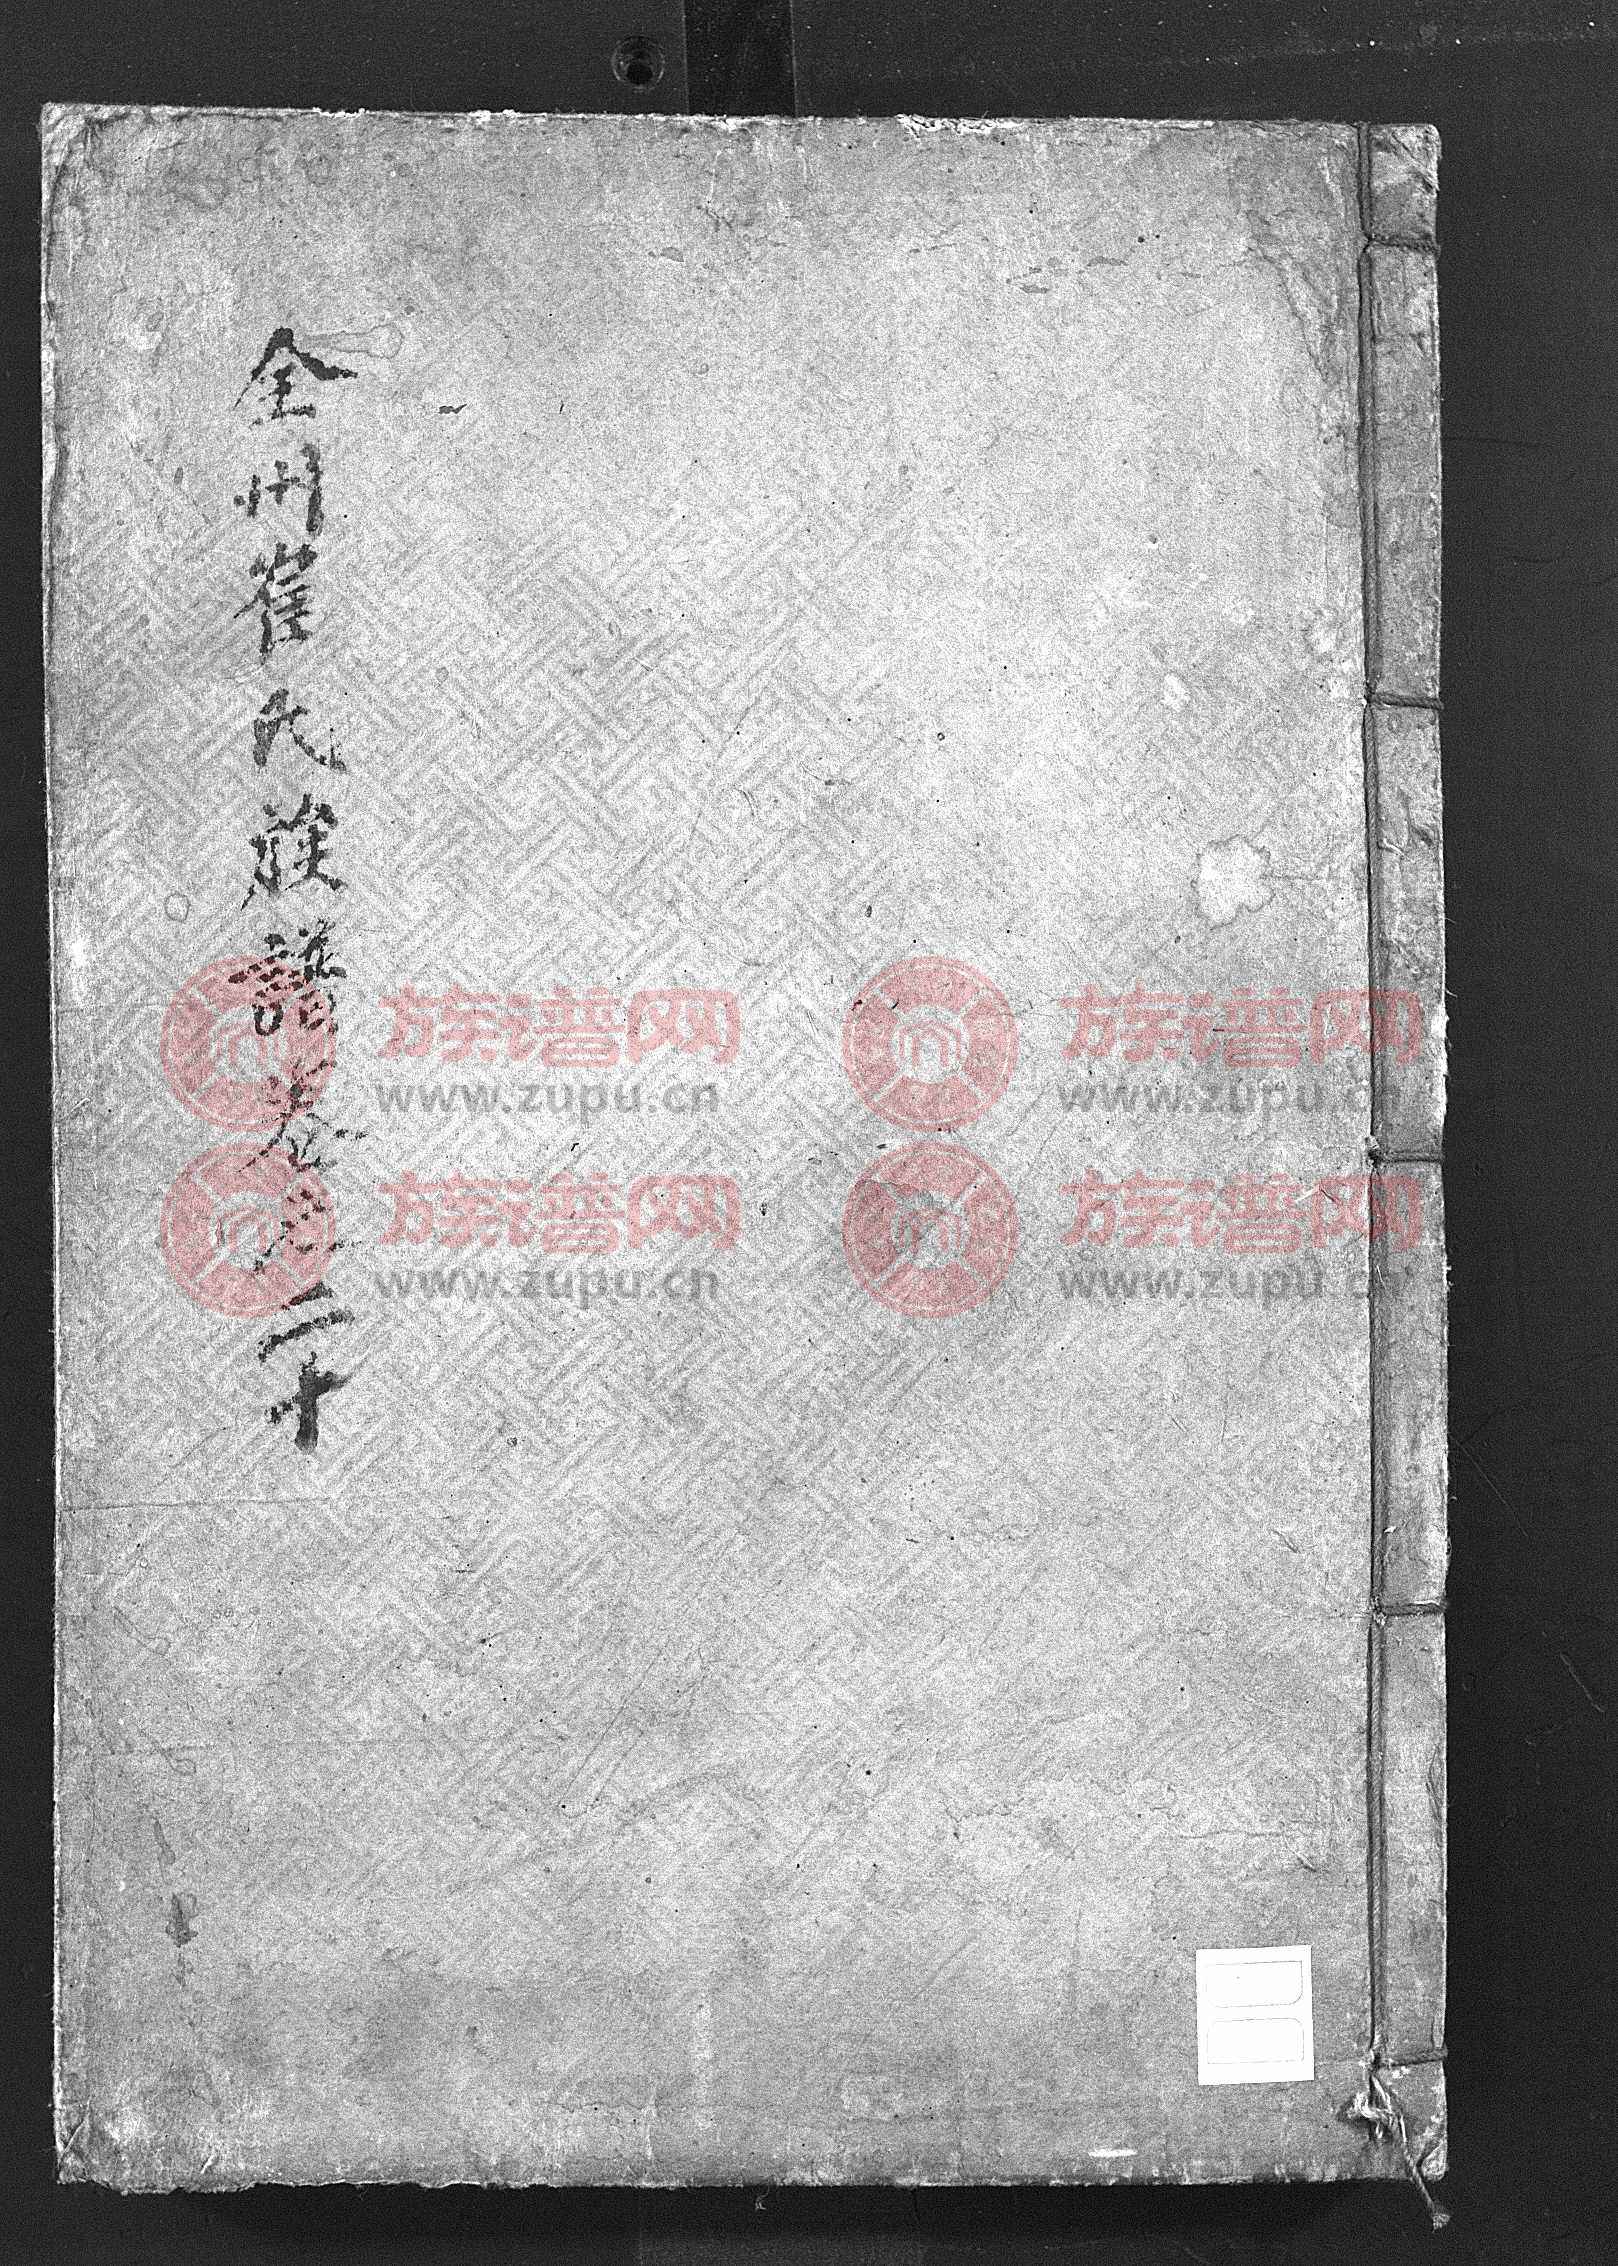 全州崔氏族譜卷之二十
族谱网
www.zupu.cn
族谱网
www.zupu.cn
族谱网
www.zupu.cn
族谱网
www.zupu.cn